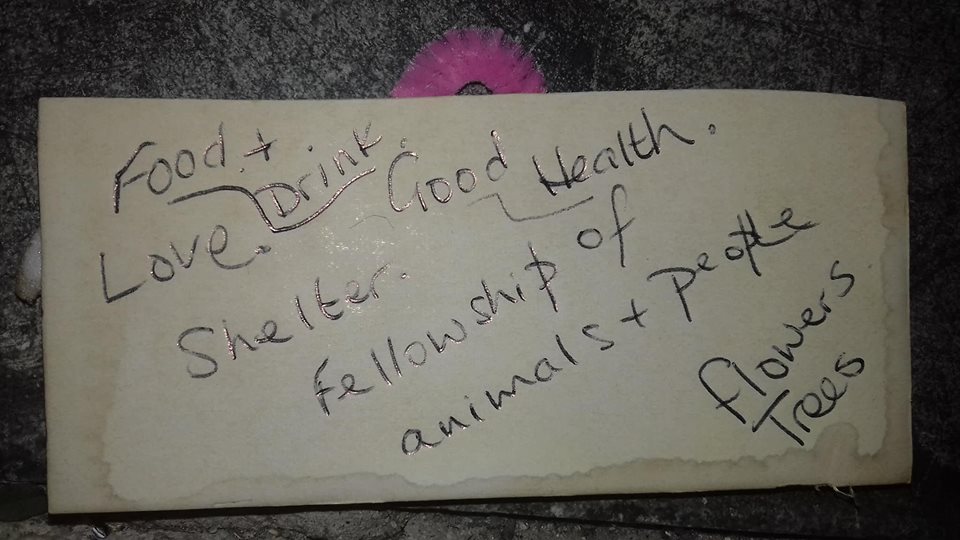 Food + Drink. Good Health.
Love.
Shelter.
Fellowship of
animals + people
flowers
Trees